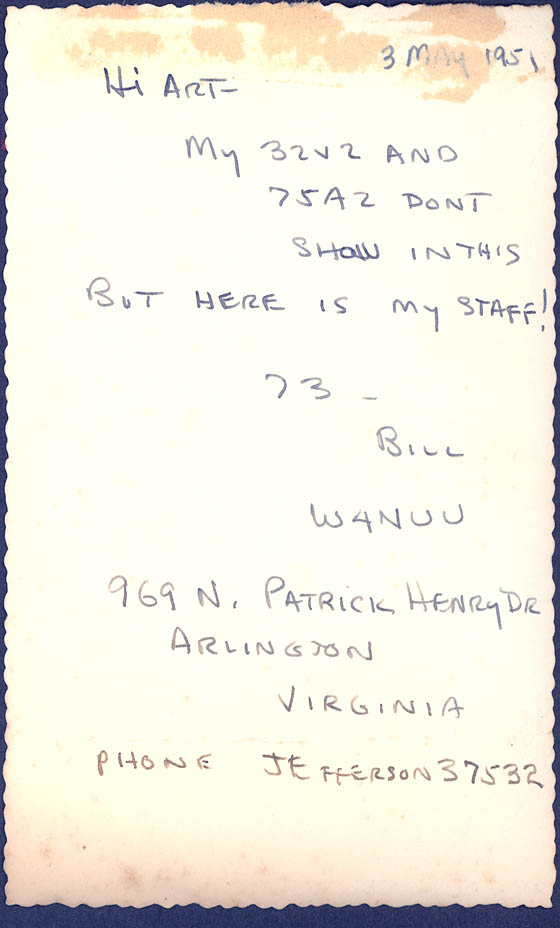 3 MAY 1951
Hi ART-
My 32V2 AND
75A2 DONT
SHOW IN THIS
BUT HERE IS MY STAFF!
73 -
BILL
W4NUU
969 N. PATRICK HENRY DR
ARLINGTON
VIRGINIA
PHONE JEFFERSON 37532